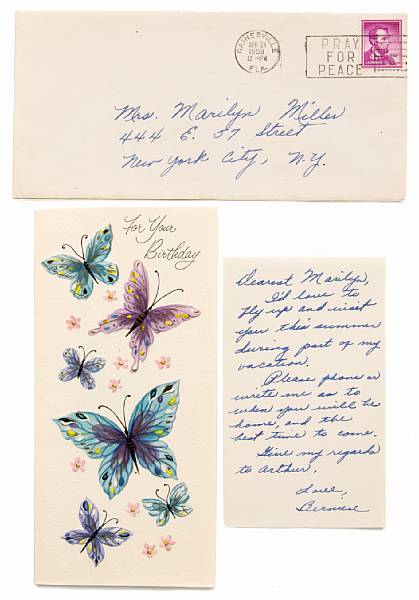 GAINESVILLE
APR 24
1959
12 30 PM
FLA.
PRAY
FOR
PEACE
Mrs. Marilyn Miller
444 E. 57 Street
New York City, N.Y.
For Your
Birthday
Dearest Marilyn,
I'd love to
fly up and visit
you this summer
during part of my
vacation.
Please phone or
write me as to
when you will be
home, and the
best time to come.
Give my regards
to Arthur.
Love,
Berniece